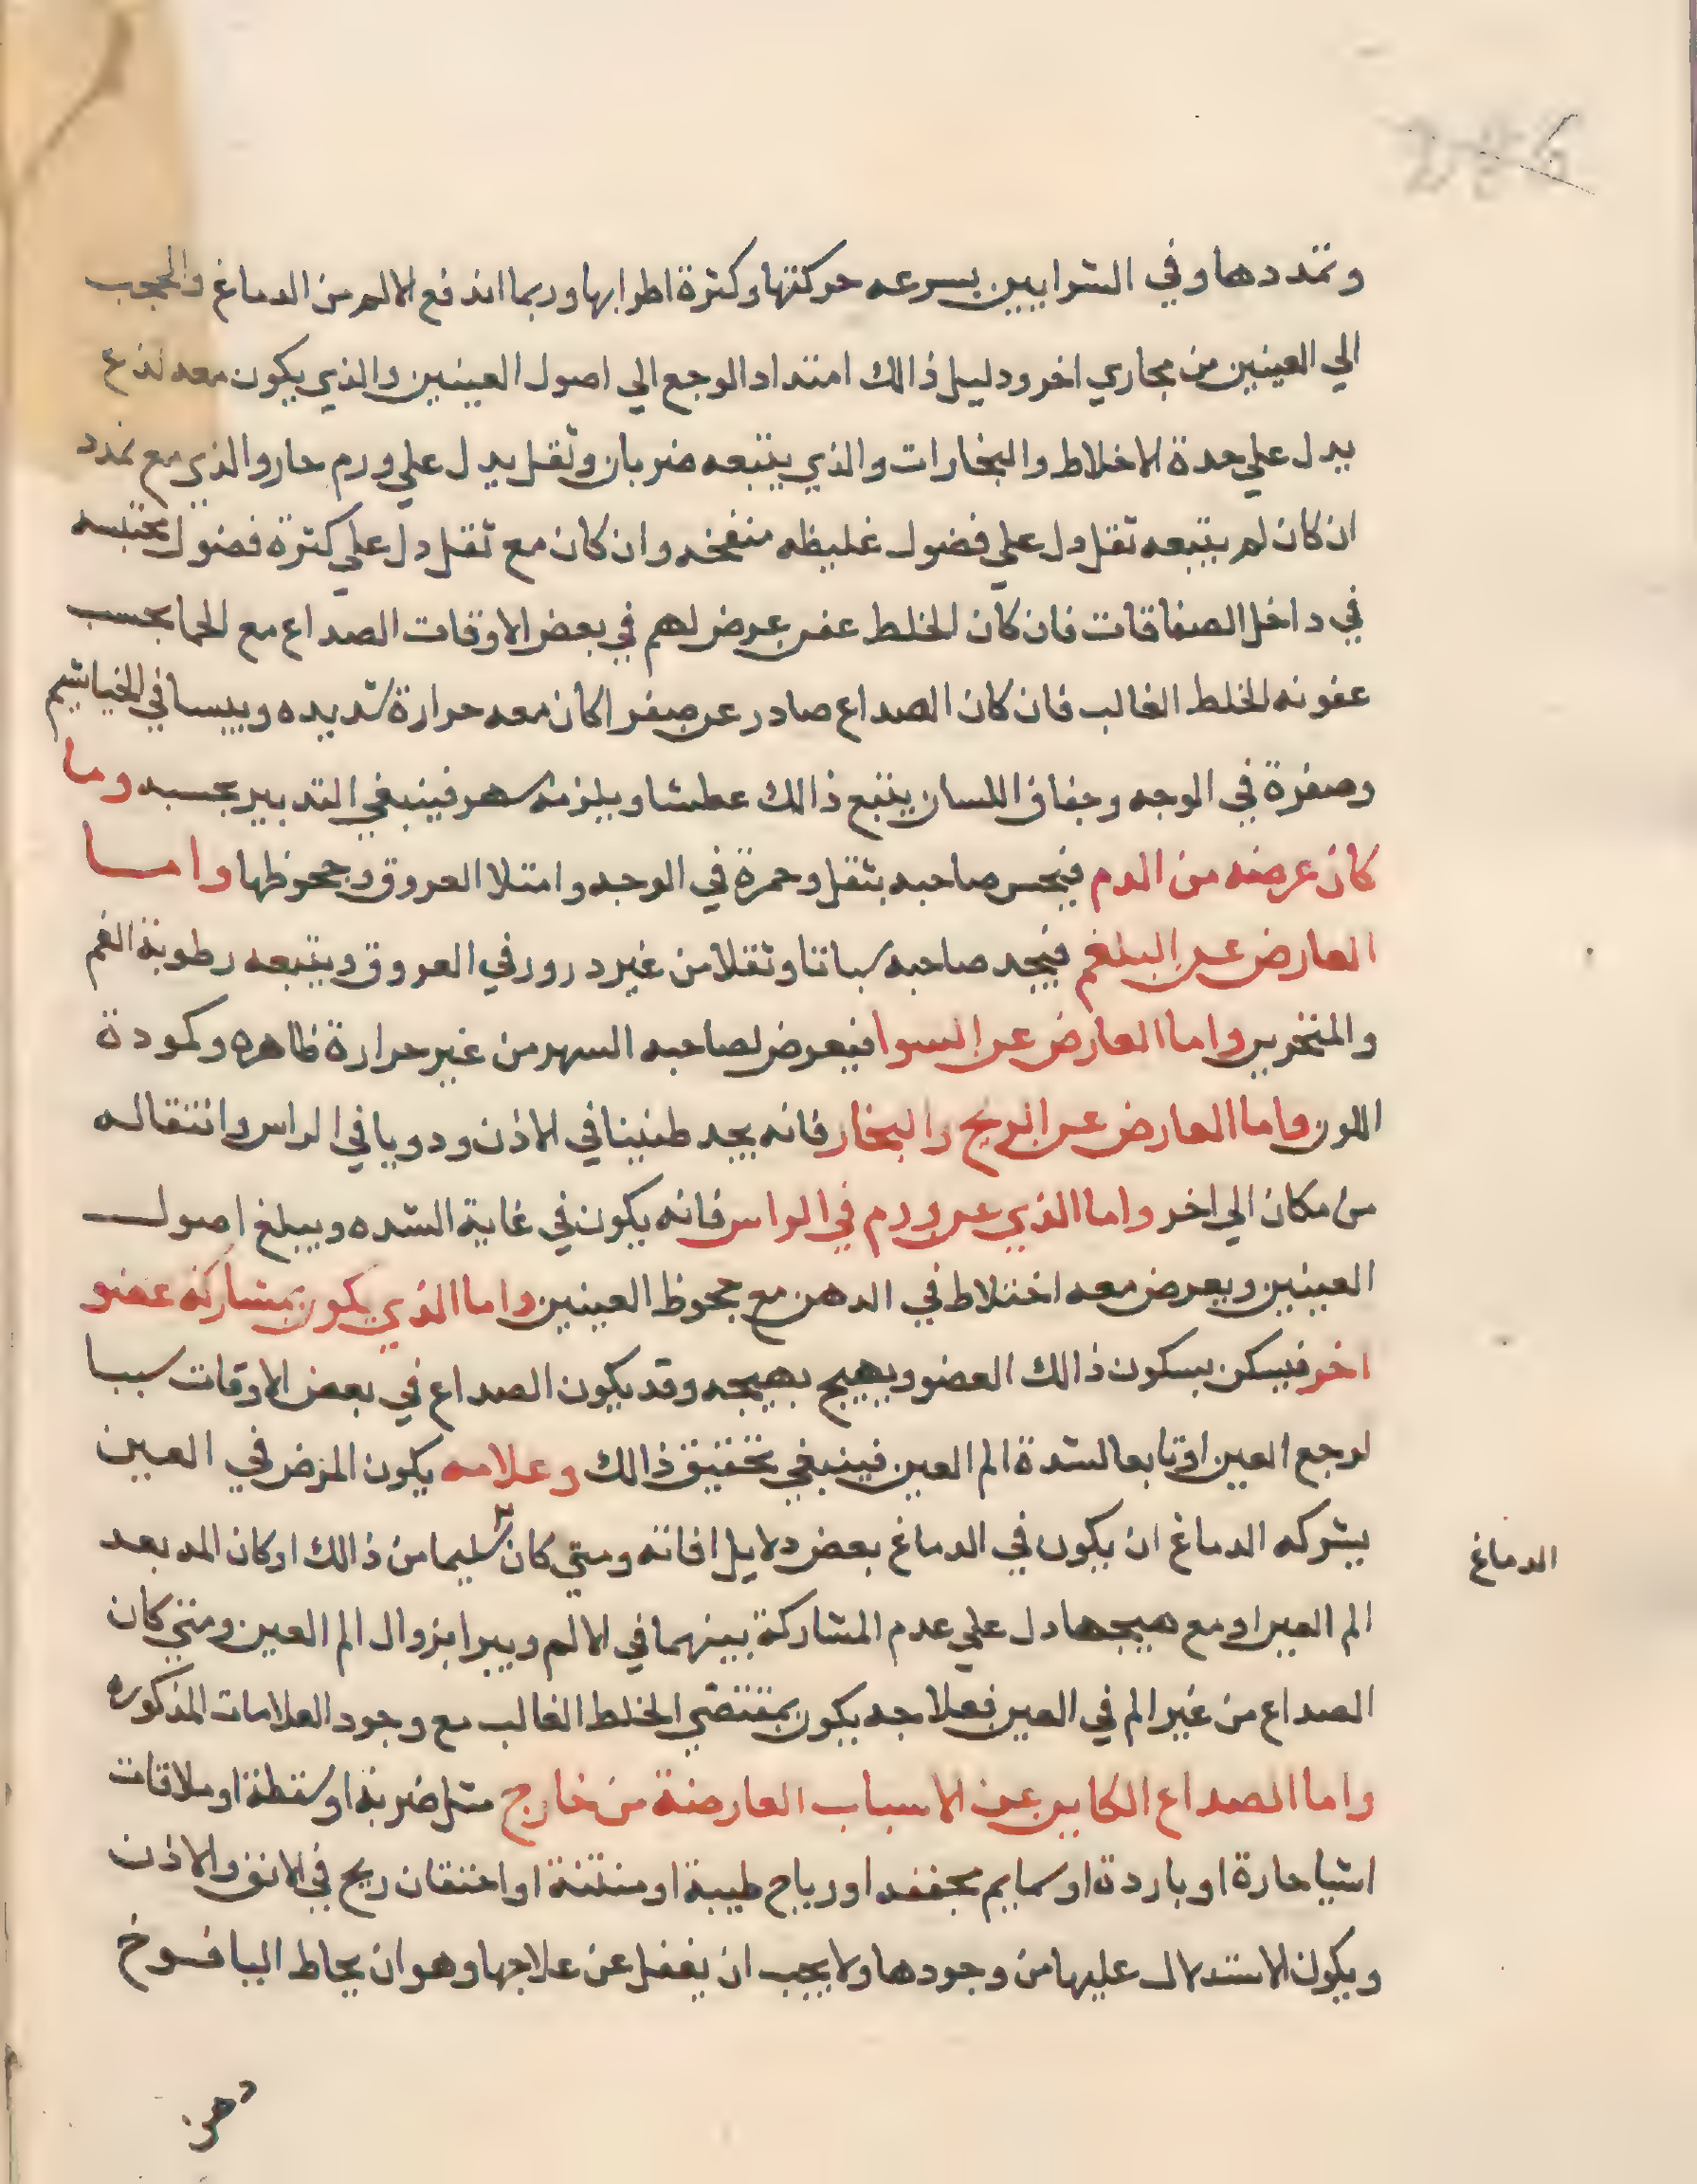 وتمددها وفي الشرايين بسرعه حركتها وكثرة اطرابها وربما اندفع الالم من الدماغ والحجب
الي العينين من مجاري اخر ودليل ذالك امتداد الوجع الي اصول العينين والذي يكون معه لذع
يدل علي حدة الاخلاط والبخارات والذي يتبعه ضربان وثقل يدل علي ورم حار والذي مع تمدد
ان كان لم يتبعه ثقل دل علي فضول غليظه منفخه وان كان مع ثقل دل علي كثرة فضول محتبسه
في داخل الصفاقات فان كان الخلط عفن عرض لهم في بعض الاوقات الصداع مع الحما بحسب
عفونه الخلط الغالب فان كان الصداع صادر عن صفرا كان معه حرارة شديده ويبسا في الخياشيم
وصفرة في الوجه وجفاف اللسان يتبع ذالك عطشا ويلزمه سهر فينبغي التدبير بحسبه وما
كان عرضه من الدم فيحس صاحبه بثقل وحمرة في الوجه وامتلا العروق وجحوظها واما
العارض عن البلغم فيجد صاحبه سباتا وثقلا من غير درور في العروق ويتبعه رطوبة الفم
والمنخرين واما العارض عن السوا فيعرض لصاحبه السهر من غير حرارة ظاهره وكمودة
اللون واما العارض عن الريح والبخار فانه يجد طنينا في الاذن ودويا في الراس وانتقاله
من مكان الي اخر واما الذي عن ورم في الراس فانه يكون في غاية الشده ويبلغ اصول
العينين ويعرض معه اختلاط في الدهن مع جحوظ العينين واما الذي يكون بمشاركة عضو
اخر فيسكن بسكون ذالك العضو ويهيج بهيجه وقد يكون الصداع في بعض الاوقات سببا
لوجع العين او تابعا لشدة الم العين فينبغي تحقيق ذالك وعلامه يكون المرض في العين
بشركه الدماغ ان يكون في الدماغ بعض دلايل افاته ومتي كان سليما من ذالك او كان المه بعد
الدماغ
الم العين او مع هيجها دل علي عدم المشاركة بينهما في الالم ويبرا بزوال الم العين ومتي كان
الصداع من غير الم في العين فعلاجه يكون بمقتضي الخلط الغالب مع وجود العلامات المذكوره
واما الصداع الكاين عن الاسباب العارضة من خارج مثل ضربة او سقطة او ملاقات
اشيا حارة او باردة او سمايم مجففه او رياح طيبة او منتنة او احتقان ريح في الانف والاذن
ويكون الاستدلال عليها من وجودها ولا يجب ان يغفل عن علاجها وهو ان يحاط اليافوخ